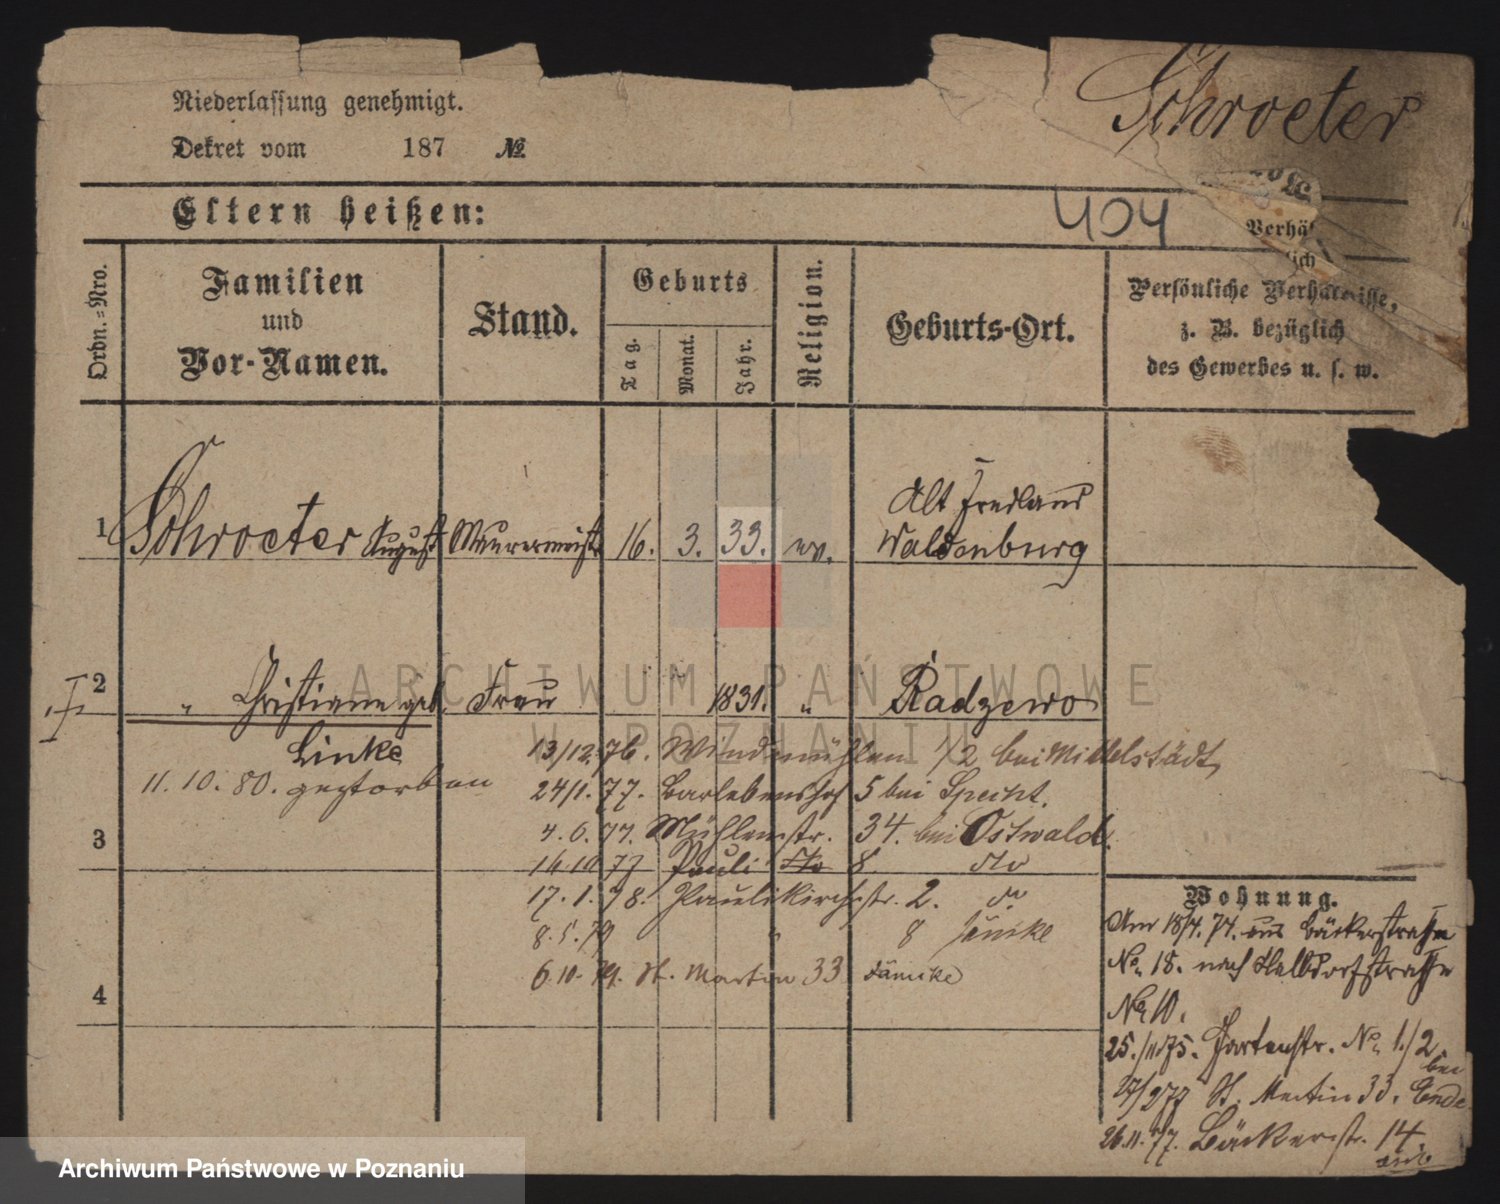 Schroeter
Niederlassung genehmigt.
Dekret vom 187 №
Eltern heißen:
404
Verhä
lich
Ordn.-Nro.
Familien
und
Vor-Namen.
Stand.
Geburts
Tag.
Monat.
Jahr.
Religion.
Geburts-Ort.
Persönliche Verhältnisse,
z. B. bezüglich
des Gewerbes u. s. w.
Alt Friedland
1 Schroeter August Maurermeistr 16. 3. 33. ev. Waldenburg
2 " Christiane geb. Frau 1831. " Radzewo
Linke
11. 10. 80. gestorben
13/12. 76. Windmühlen 1/2 bei Mittelstädt
24/1. 77. Barlebenshof 5 bei Specht.
3
4. 6. 77. Mühlenstr. 34. bei Ostwald.
14 10 77 Pauli do 8. do
17. 1. 78. Paulikirchstr. 2. do
8. 5. 79 " 8 Jänike
6. 10. 79. St. Martin 33 Jänicke
4
Wohnung.
Am 18/4. 74. aus Bäckerstraße
No. 18. nach Halbdorfstraße
No 10.
25./1175. Gartenstr. No. 1./2
bei
27/277 St. Martin 33. Ende
26. 11. 77. Bäckerstr. 14.
ARCHIWUM PAŃSTWOWE
W POZNANIU
Archiwum Państwowe w Poznaniu